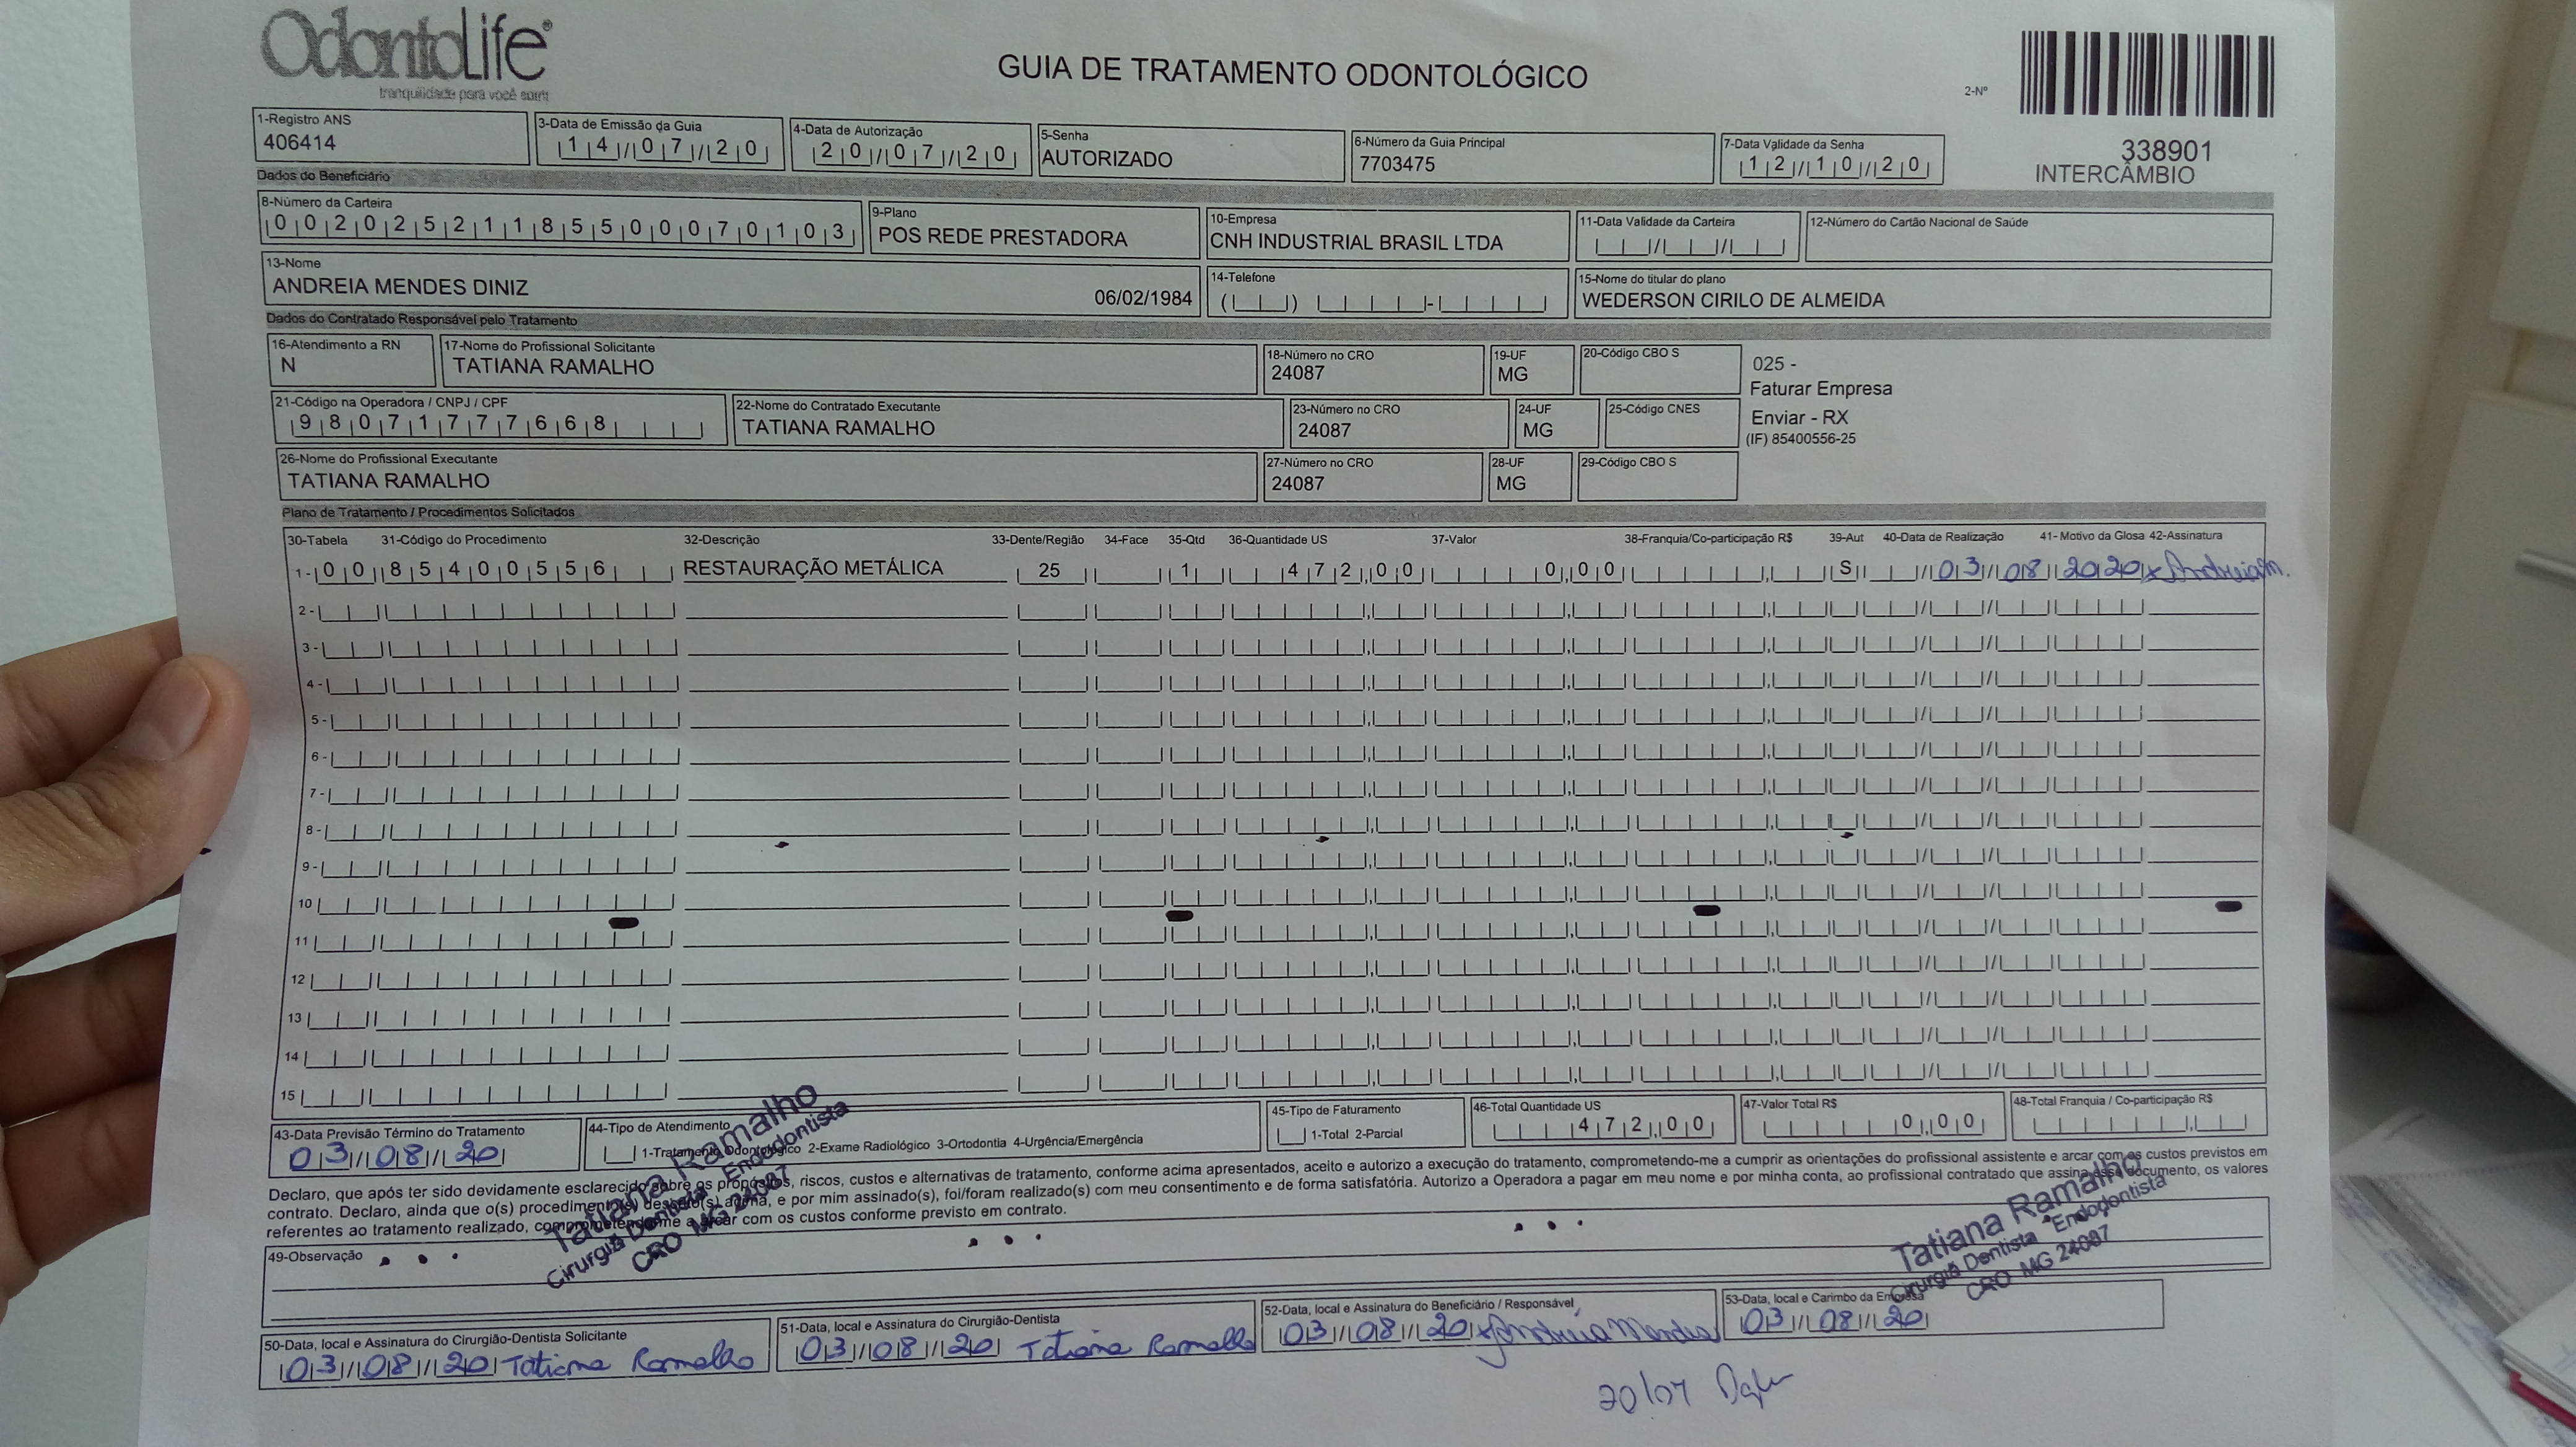 OdontoLife®
tranquilidade para você sorrir
GUIA DE TRATAMENTO ODONTOLÓGICO
2-Nº
338901
INTERCÂMBIO
1-Registro ANS
406414
3-Data de Emissão da Guia
14/07/20
4-Data de Autorização
20/07/20
5-Senha
AUTORIZADO
6-Número da Guia Principal
7703475
7-Data Validade da Senha
12/10/20
Dados do Beneficiário
8-Número da Carteira
00202521185500070103
9-Plano
POS REDE PRESTADORA
10-Empresa
CNH INDUSTRIAL BRASIL LTDA
11-Data Validade da Carteira
12-Número do Cartão Nacional de Saúde
13-Nome
ANDREIA MENDES DINIZ 06/02/1984
14-Telefone
15-Nome do titular do plano
WEDERSON CIRILO DE ALMEIDA
Dados do Contratado Responsável pelo Tratamento
16-Atendimento a RN
N
17-Nome do Profissional Solicitante
TATIANA RAMALHO
18-Número no CRO
24087
19-UF
MG
20-Código CBO S
025 -
Faturar Empresa
Enviar - RX
(IF) 85400556-25
21-Código na Operadora / CNPJ / CPF
98071777668
22-Nome do Contratado Executante
TATIANA RAMALHO
23-Número no CRO
24087
24-UF
MG
25-Código CNES
26-Nome do Profissional Executante
TATIANA RAMALHO
27-Número no CRO
24087
28-UF
MG
29-Código CBO S
Plano de Tratamento / Procedimentos Solicitados
30-Tabela 31-Código do Procedimento 32-Descrição 33-Dente/Região 34-Face 35-Qtd 36-Quantidade US 37-Valor 38-Franquia/Co-participação R$ 39-Aut 40-Data de Realização 41- Motivo da Glosa 42-Assinatura
1- 00 85400556 RESTAURAÇÃO METÁLICA 25 1 472,00 0,00 S 03/08/2020 x Andreia m.
2-
3-
4-
5-
6-
7-
8-
9-
10
11
12
13
14
15
43-Data Previsão Término do Tratamento
03/08/20
44-Tipo de Atendimento
1-Tratamento Odontológico 2-Exame Radiológico 3-Ortodontia 4-Urgência/Emergência
45-Tipo de Faturamento
1-Total 2-Parcial
46-Total Quantidade US
472,00
47-Valor Total R$
0,00
48-Total Franquia / Co-participação R$
Declaro, que após ter sido devidamente esclarecido sobre os propósitos, riscos, custos e alternativas de tratamento, conforme acima apresentados, aceito e autorizo a execução do tratamento, comprometendo-me a cumprir as orientações do profissional assistente e arcar com os custos previstos em
contrato. Declaro, ainda que o(s) procedimento(s) descrito(s) acima, e por mim assinado(s), foi/foram realizado(s) com meu consentimento e de forma satisfatória. Autorizo a Operadora a pagar em meu nome e por minha conta, ao profissional contratado que assina esse documento, os valores
referentes ao tratamento realizado, comprometendo-me a arcar com os custos conforme previsto em contrato.
Tatiana Ramalho
Cirurgiã Dentista Endodontista
CRO MG 24087
Tatiana Ramalho
Cirurgiã Dentista Endodontista
CRO MG 24087
49-Observação
50-Data, local e Assinatura do Cirurgião-Dentista Solicitante
03/08/20 Tatiana Ramalho
51-Data, local e Assinatura do Cirurgião-Dentista
03/08/20 Tatiana Ramalho
52-Data, local e Assinatura do Beneficiário / Responsável
03/08/20 x Andreia Mendes
53-Data, local e Carimbo da Empresa
03/08/20
20/07